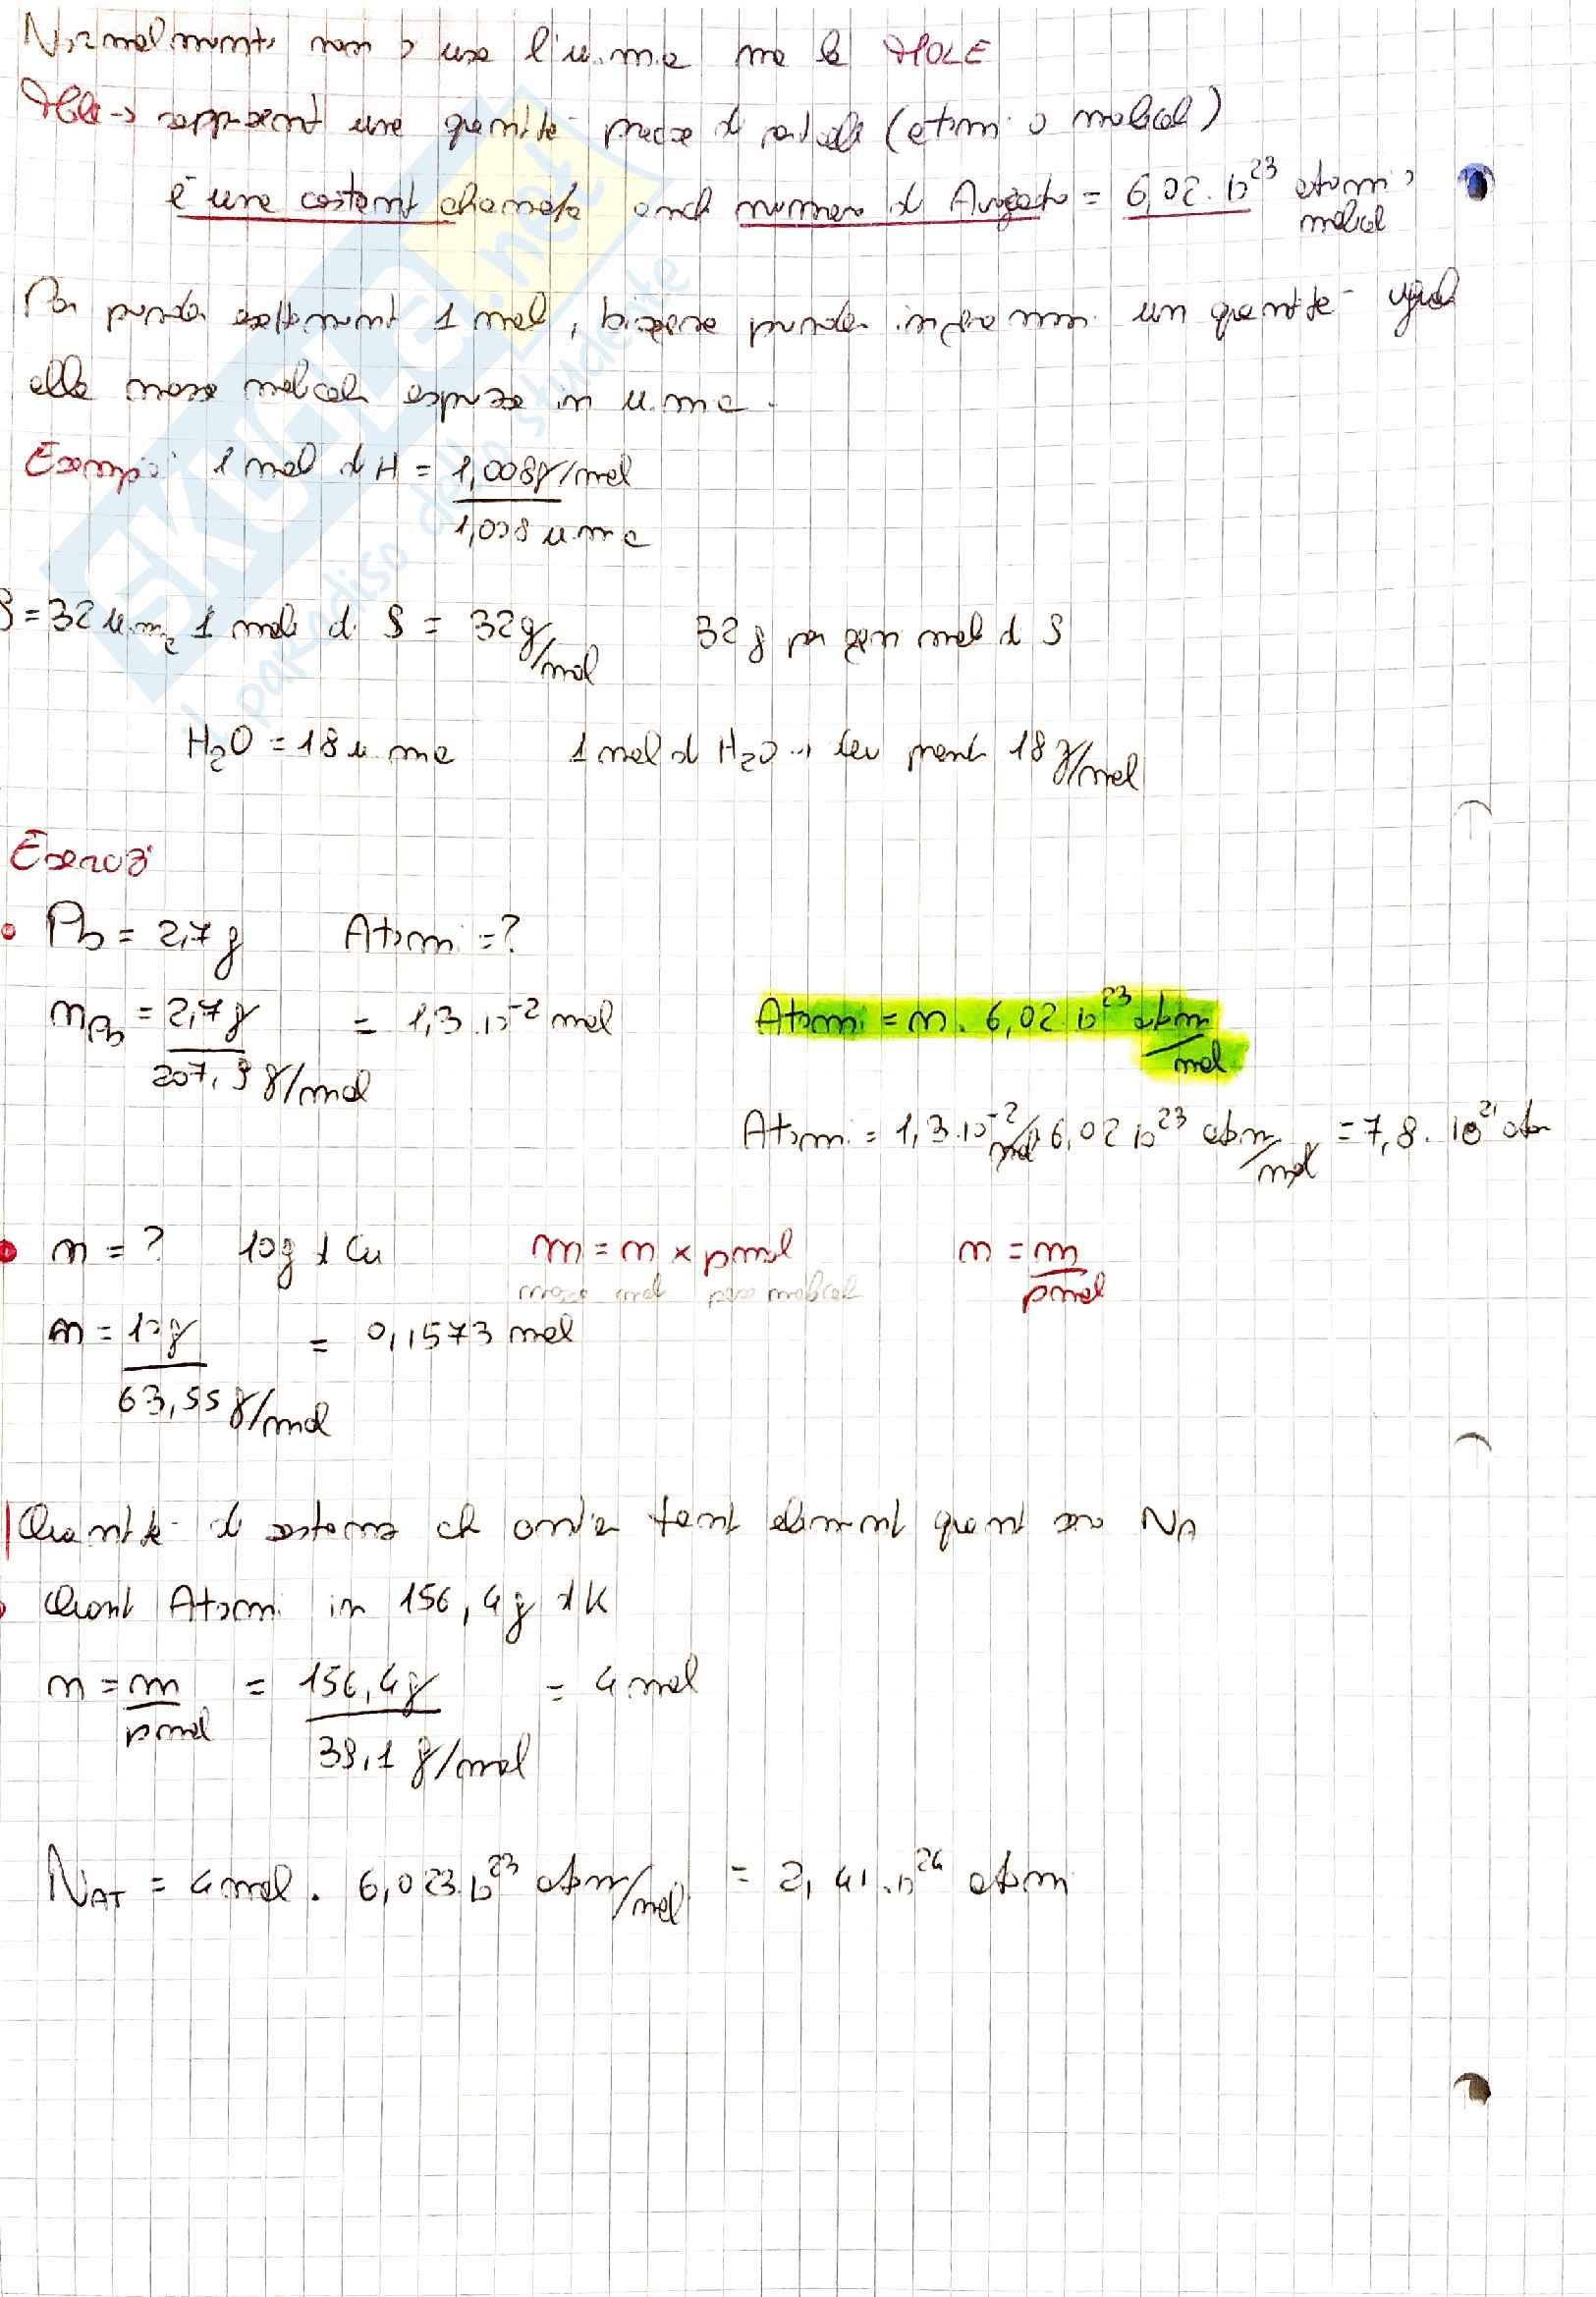 Normalmente non si usa l'u.m.a ma la MOLE
Mole → rappresenta una quantità precisa di particelle (atomi o molecole)
è una costante chiamata anche numero di Avogadro = 6,02 · 10²³ atomi o
molecole
Per prendere esattamente 1 mol, bisogna prendere in grammi un quantità uguale
alla massa molecolare espressa in u.m.a.
Esempio: 1 mol di H = 1,008g/mol
1,008 u.m.a
S = 32 u.m.a 1 mole di S = 32g/mol 32 g per ogni mol di S
H₂O = 18 u.m.a 1 mol di H₂O → devo prendere 18 g/mol
Esercizi
• Pb = 2,7 g Atomi = ?
nPb = 2,7 g = 1,3 · 10⁻² mol Atomi = n · 6,02 · 10²³ atomi/mol
207, g/mol
Atomi = 1,3 · 10⁻² mol 6,02 10²³ atomi/mol = 7,8 · 10²¹ atomi
• n = ? 10g di Cu m = n × pmol n = m/pmol
massa mol peso molecolare
n = 10g = 0,1573 mol
63,55 g/mol
Quantità di sistema che contiene tanti elementi quanti sono NA
Quanti Atomi in 156,4g di K
n = m/pmol = 156,4g = 4 mol
39,1 g/mol
NAT = 4 mol · 6,023 · 10²³ atomi/mol = 2,41 · 10²⁴ atomi
SKUOLA.net
il paradiso dello studente